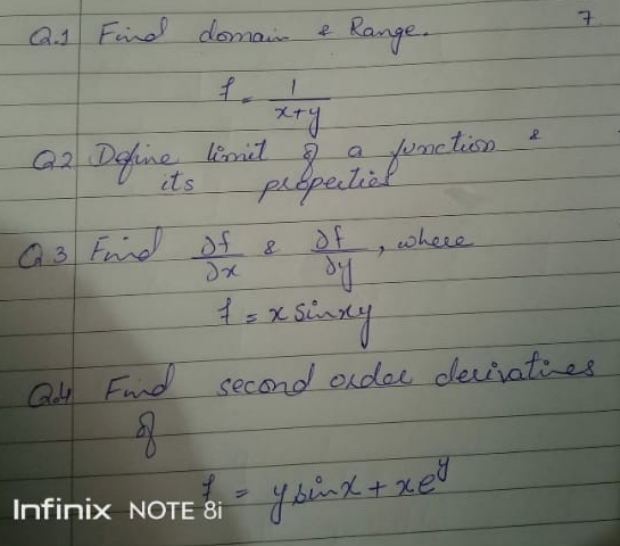 7
Q.1 Find domain & Range.
f = 1/(x+y)
Q2 Define limit of a function &
its properties
Q3 Find ∂f/∂x & ∂f/∂y, where
f = x sinxy
Q.4 Find second order derivatives
of
f = y sinx + xe^y
Infinix NOTE 8i